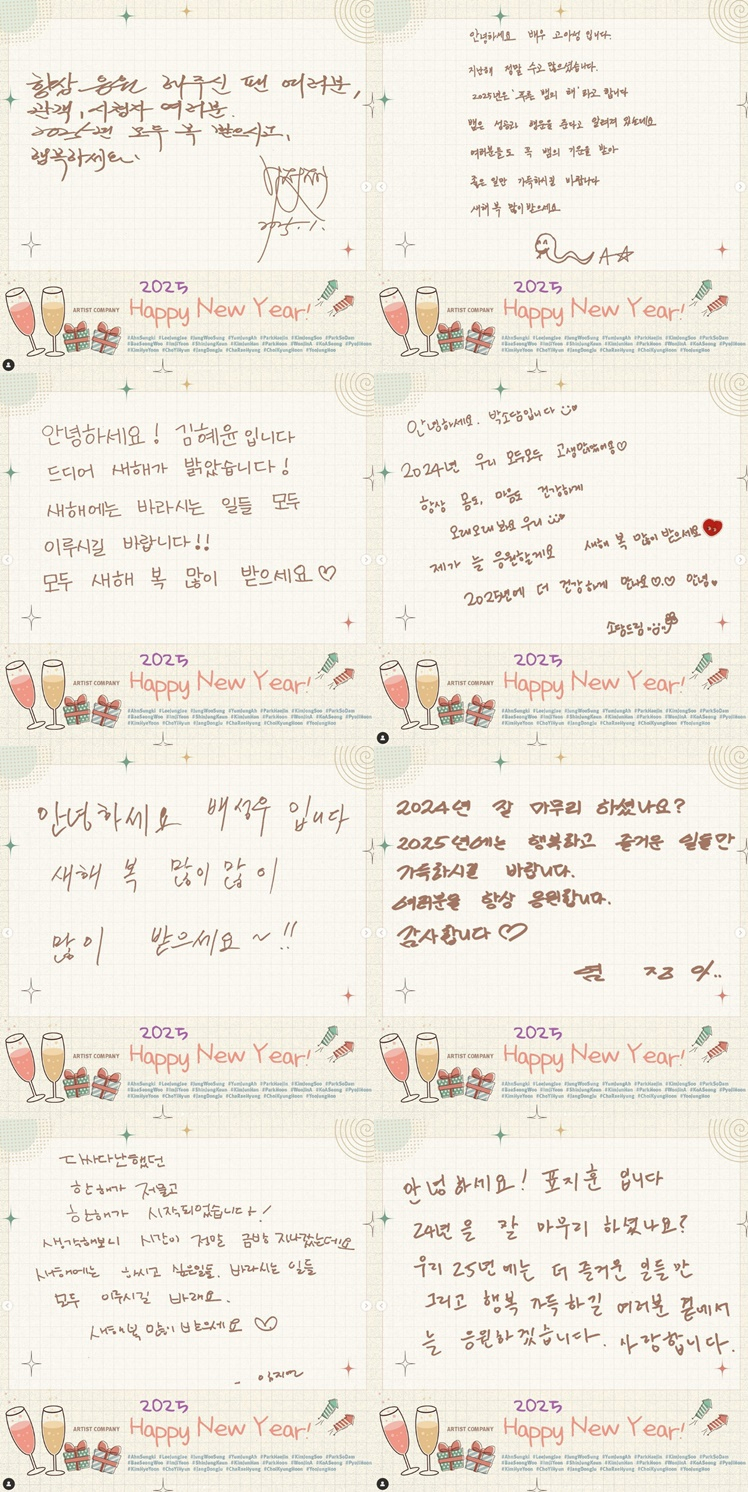 항상 응원 해주신 팬 여러분,
관객, 시청자 여러분.
2025년 모두 복 받으시고,
행복하세요.
2025.1.
2025
Happy New Year!
ARTIST COMPANY
안녕하세요 배우 고아성 입니다.
지난해 정말 수고 많으셨습니다.
2025년은 '푸른 뱀의 해' 라고 합니다
뱀은 성공과 행운을 준다고 알려져 있는데요
여러분들도 꼭 뱀의 기운을 받아
좋은 일만 가득하시길 바랍니다
새해 복 많이 받으세요
A☆
2025
Happy New Year!
ARTIST COMPANY
안녕하세요! 김혜윤입니다
드디어 새해가 밝았습니다!
새해에는 바라시는 일들 모두
이루시길 바랍니다!!
모두 새해 복 많이 받으세요♡
2025
Happy New Year!
ARTIST COMPANY
안녕하세요. 박소담입니다
2024년 우리 모두모두 고생많았어용♡
항상 몸도, 마음도 건강하게
오래오래 봐요 우리
제가 늘 응원할게요
새해 복 많이 받으세요
2025년에 더 건강하게 만나요♡.♡ 안녕
소담드림
2025
Happy New Year!
ARTIST COMPANY
안녕하세요 배성우 입니다
새해 복 많이 많이
많이 받으세요~!!
2025
Happy New Year!
ARTIST COMPANY
2024년 잘 마무리 하셨나요?
2025년에는 행복하고 즐거운 일들만
가득하시길 바랍니다.
여러분을 항상 응원합니다.
감사합니다♡
2025
Happy New Year!
ARTIST COMPANY
다사다난했던
한해가 저물고
한해가 시작되었습니다!
생각해보니 시간이 정말 금방 지나갔는데요
새해에는 하시고 싶은일들, 바라시는 일들
모두 이루시길 바래요.
새해복 많이 받으세요♡
- 임지연
2025
Happy New Year!
ARTIST COMPANY
안녕하세요! 표지훈 입니다
24년을 잘 마무리 하셨나요?
우리 25년에는 더 즐거운 일들만
그리고 행복 가득하길 여러분 곁에서
늘 응원하겠습니다. 사랑합니다.
2025
Happy New Year!
ARTIST COMPANY